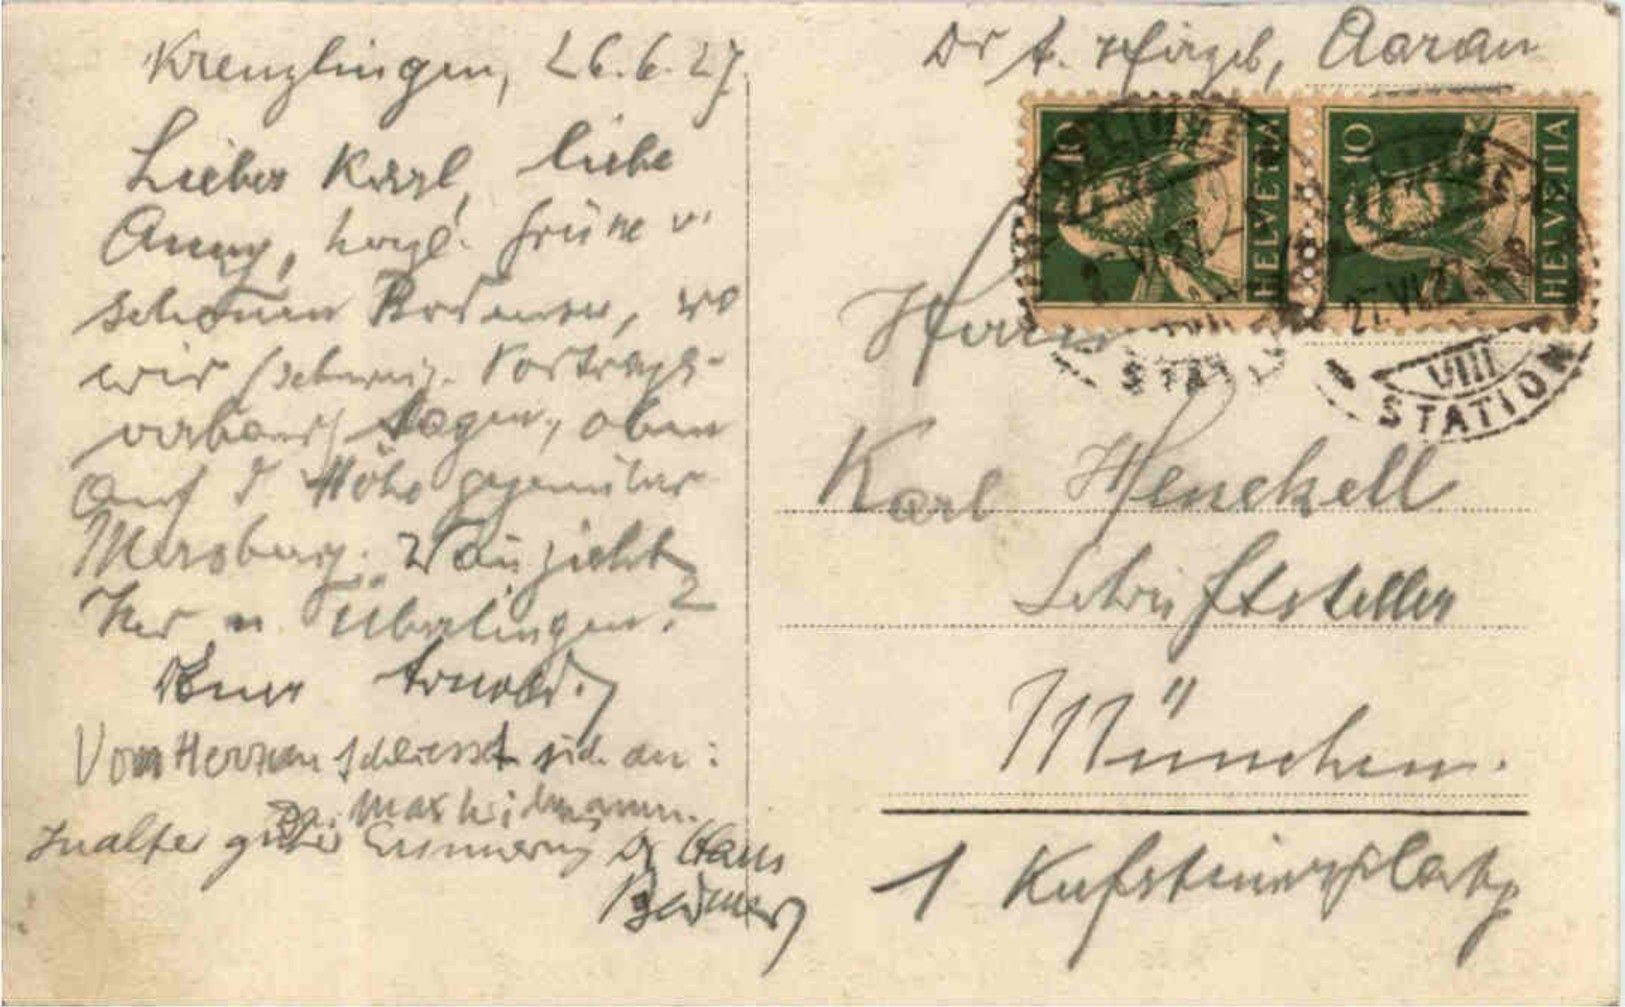 Kreuzlingen, 26.6.27.
Lieber Karl, liebe
Anny, herzl. Grüsse v.
schönen Bodensee, wo
wir (schweiz. Vortrags-
verband) tagen, oben
auf d. Höhe gegenüber
Mersburg. Wann zieht
Ihr n. Überlingen?
Euer Arnold.
Vom Herzen schliesst sich an:
Max Widmann.
In alter guter Erinnerung Dr Hans
Dr A. Hirzel, Aarau
10 HELVETIA
10 HELVETIA
27.VI.27
VIII
STATION
Herrn
Karl Henckell
Schriftsteller
München.
1 Kufsteinerplatz